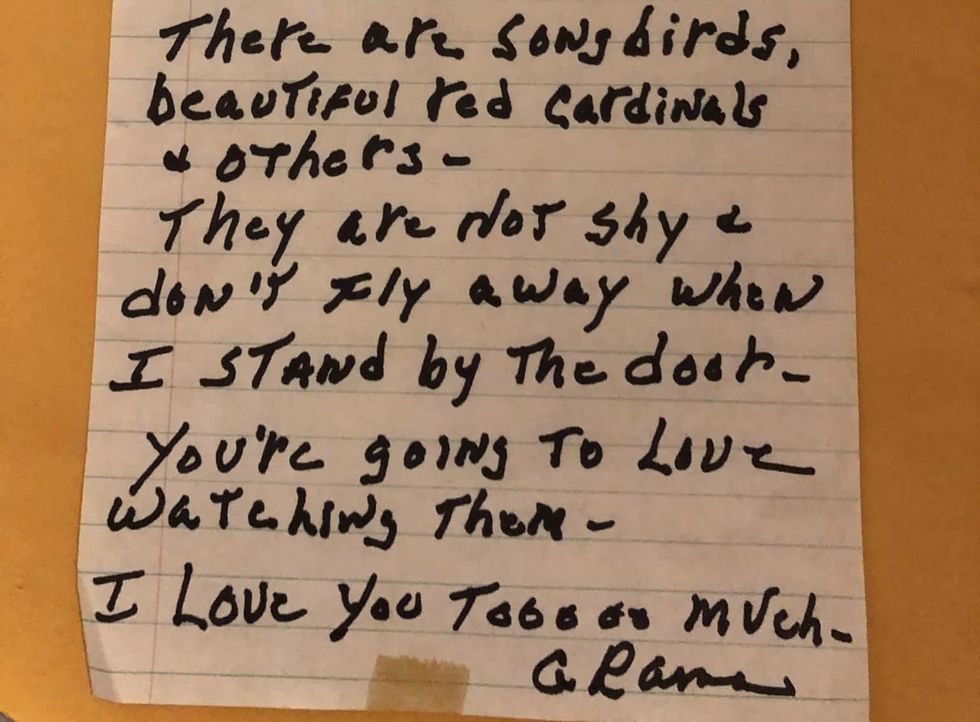 There are songbirds,
beautiful red cardinals
& others -
They are not shy &
don't fly away when
I stand by the door -
You're going to Love
watching them -
I Love you Toooooo much -
GRama